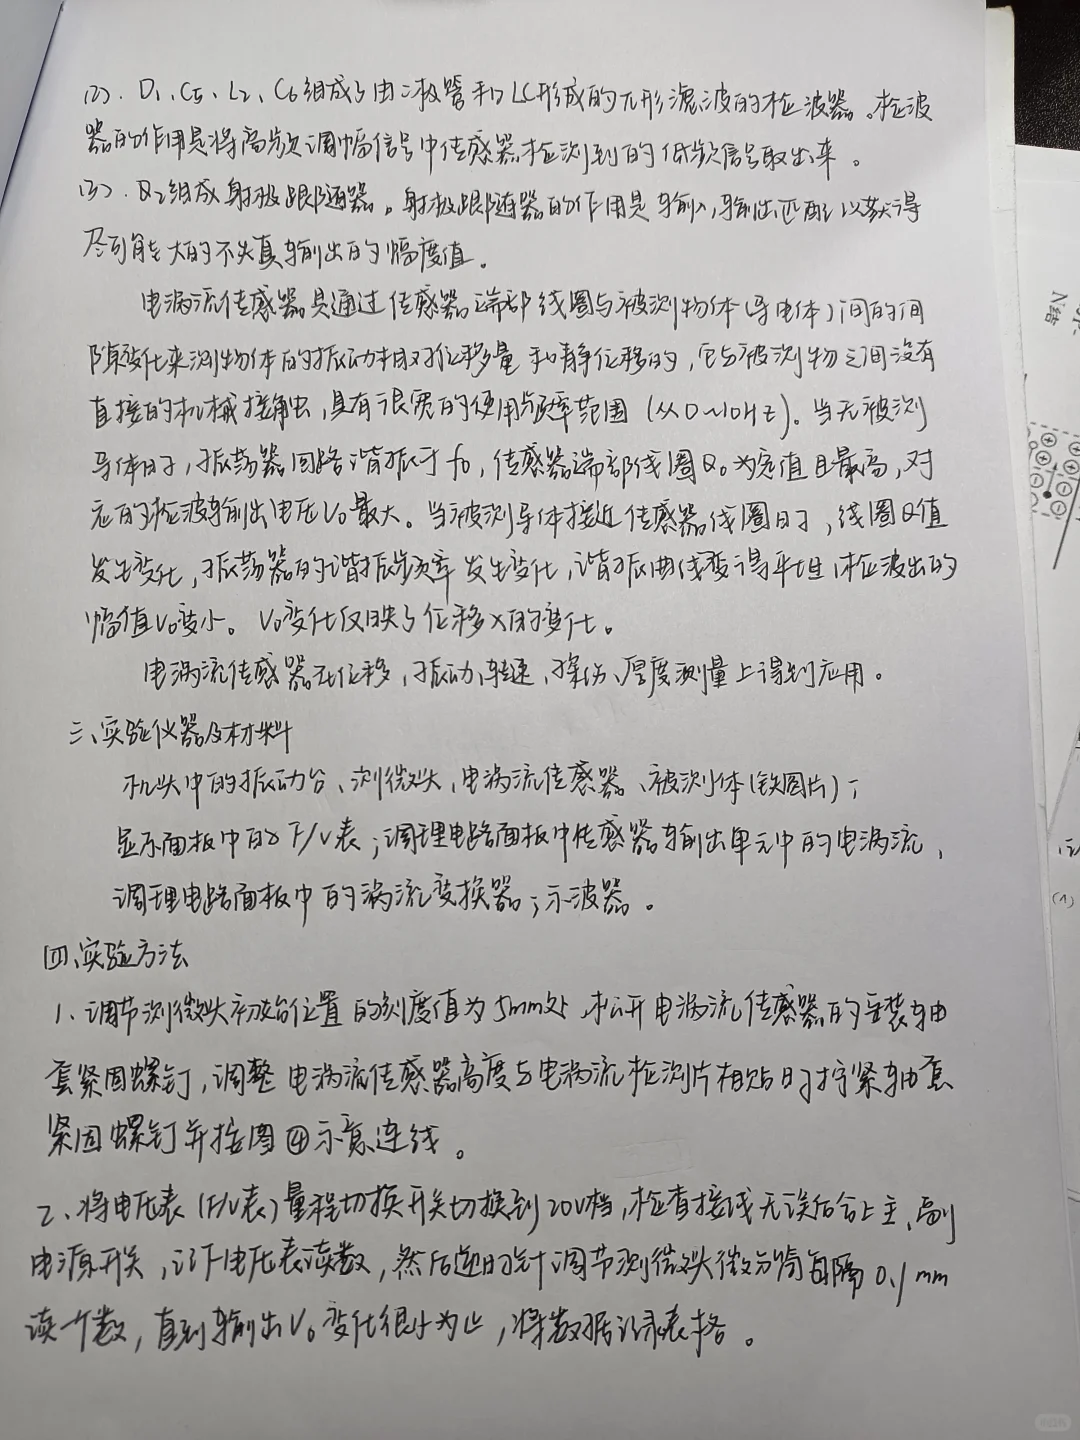 (2). D₁、C5、L2、C6组成了由二极管和LC形成的π形滤波的检波器。检波
器的作用是将高频调幅信号中传感器检测到的低频信号取出来。
(3). Q2组成射极跟随器。射极跟随器的作用是输入、输出匹配以获得
尽可能大的不失真输出的幅度值。
电涡流传感器是通过传感器端部线圈与被测物体(导电体)间的间
隙变化来测物体的振动相对位移量和静位移的,它与被测物之间没有
直接的机械接触,具有很宽的使用频率范围(从0~10Hz)。当无被测
导体时,振荡器回路谐振于f0,传感器端部线圈Q0为定值且最高,对
应的检波输出电压V0最大。当被测导体接近传感器线圈时,线圈Q值
发生变化,振荡器的谐振频率发生变化,谐振曲线变得平坦,检波出的
幅值V0变小。V0变化反映了位移X的变化。
电涡流传感器在位移、振动、转速、探伤、厚度测量上得到应用。
三、实验仪器及材料
机头中的振动台、测微头、电涡流传感器、被测体(铁圆片);
显示面板中的F/V表;调理电路面板中传感器输出单元中的电涡流、
调理电路面板中的涡流变换器;示波器。
四、实验方法
1、调节测微头初始位置的刻度值为5mm处,松开电涡流传感器的安装轴
套紧固螺钉,调整电涡流传感器高度与电涡流检测片相贴时拧紧轴套
紧固螺钉并按图④示意连线。
2、将电压表(F/V表)量程切换开关切换到20V档,检查接线无误后合上主、副
电源开关,记下电压表读数,然后逆时针调节测微头微分筒每隔0.1mm
读个数,直到输出V0变化很小为止,将数据记录表格。
N结
(1)